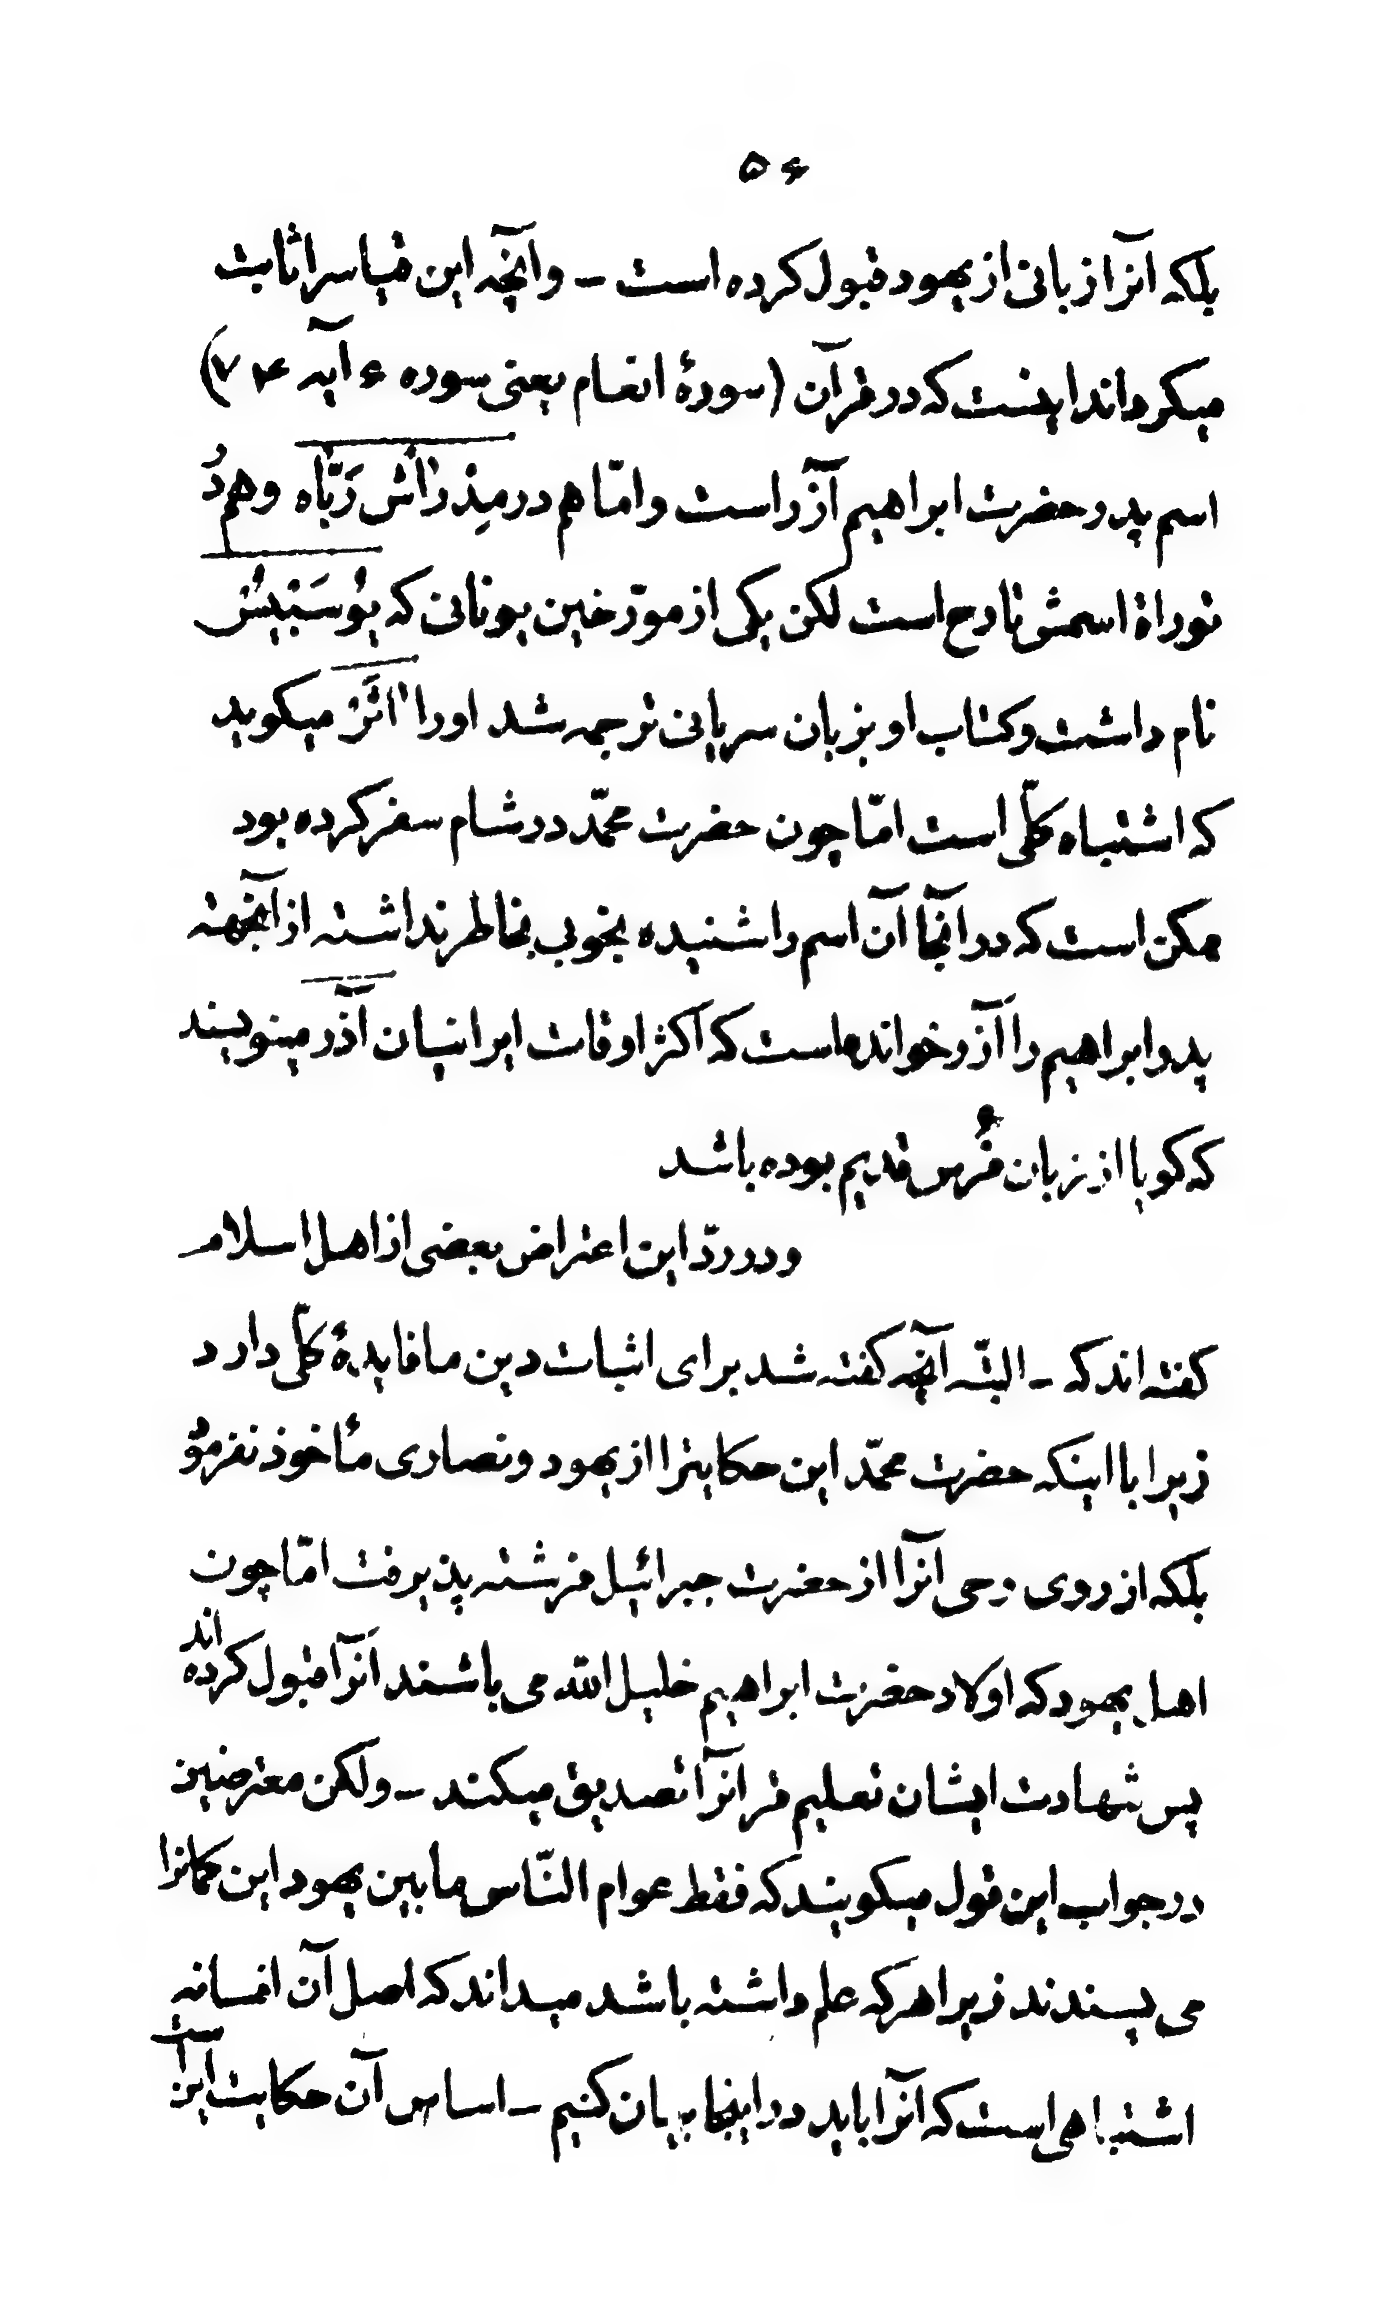 ۵۶
بلکه آنرا زبانی از یهود قبول کرده است – وآنچه این قیاسرا ثابت
میکرداند اینست که در قرآن (سورهٔ انعام یعنی سوره ۶ آیه ۷۴)
اسم پدر حضرت ابراهیم آزر است وامّا هم در مِدْراش رَبّاه وهم دُ
توراة اسمش تارح است لکن یکی از مورّخین یونانی که یوسَبیُس
نام داشت وکتاب او بزبان سریانی ترجمه شد اورا اثَر میکوید
که اشتباه کلّی است امّا چون حضرت محمّد در شام سفر کرده بود
ممکن است که در آنجا آن اسم را شنیده بخوبی بخاطر نداشته از آنجهته
پدر ابراهیم را آزر خوانده است که اکثر اوقات ایرانیان آذر مینویسند
که کویا از زبان فُرس قدیم بوده باشد
ودر ردّ این اعتراض بعضی از اهل اسلام
کفته اند که – البتّه آنچه کفته شد برای اثبات دین ما فایدهٔ کلّی دارد
زیرا با اینکه حضرت محمّد این حکایترا از یهود ونصاری مأخوذ نفرمود
بلکه از روی وحی آنرا از حضرت جبرائیل فرشته پذیرفت امّا چون
اهل یهود که اولاد حضرت ابراهیم خلیل الله می باشند آنرا قبول کرده اند
پس شهادت ایشان تعلیم قرآنرا تصدیق میکند – ولکن معترضین
در جواب این قول میکویند که فقط عوام النّاس مابین یهود این حکاترا
می پسندند زیرا هر که علم داشته باشد میداند که اصل آن افسانه
اشتباهی است که آنرا باید در اینجا بیان کنیم – اساس آن حکایت این است